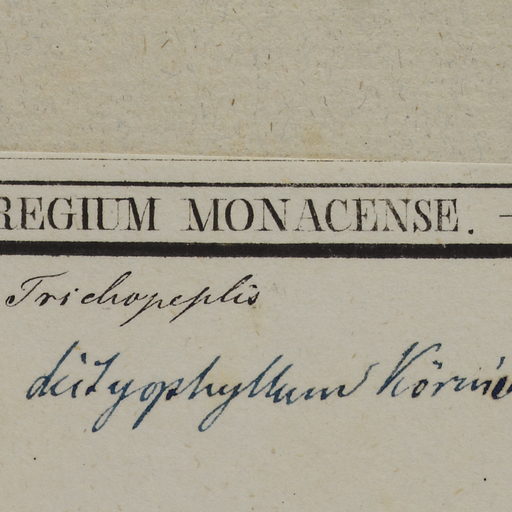 REGIUM MONACENSE. -
Trichopeplis
dictyophyllum Körnic